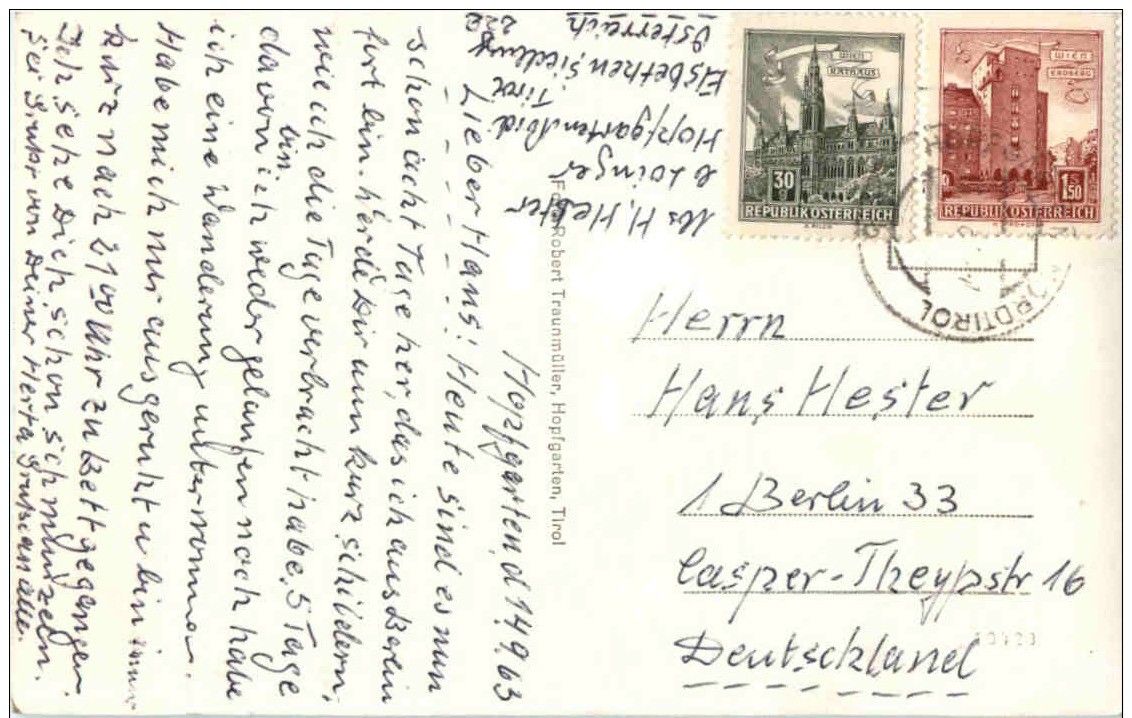 Hopfgarten, d 14.9.63
Lieber Hans! Heute sind es nun
schon acht Tage her, das ich aus Berlin
fort bin. Werde Dir nun kurz schildern,
wie ich die Tage verbracht habe. 5 Tage
davon bin ich weder gelaufen noch habe
ich eine Wanderung unternommen.
Habe mich nur ausgeruht u bin immer
kurz nach 21 00 Uhr zu Bett gegangen.
Ich sehe Dich schon schmunzeln.
Sei Gruß von Deiner Herta Gruß an alle.
Abs H. Hester
b
Hopfgarten Nord.
Tirol
Elsbethen Siedlung
222
Österreich
Foto Robert Traunmüller, Hopfgarten, Tirol
WIEN
RATHAUS
30
REPUBLIK ÖSTERREICH
WIEN
ERDBERG
1.50
REPUBLIK ÖSTERREICH
NORDTIROL
Herrn
Hans Hester
1 Berlin 33
Casper-Theypstr 16
Deutschland